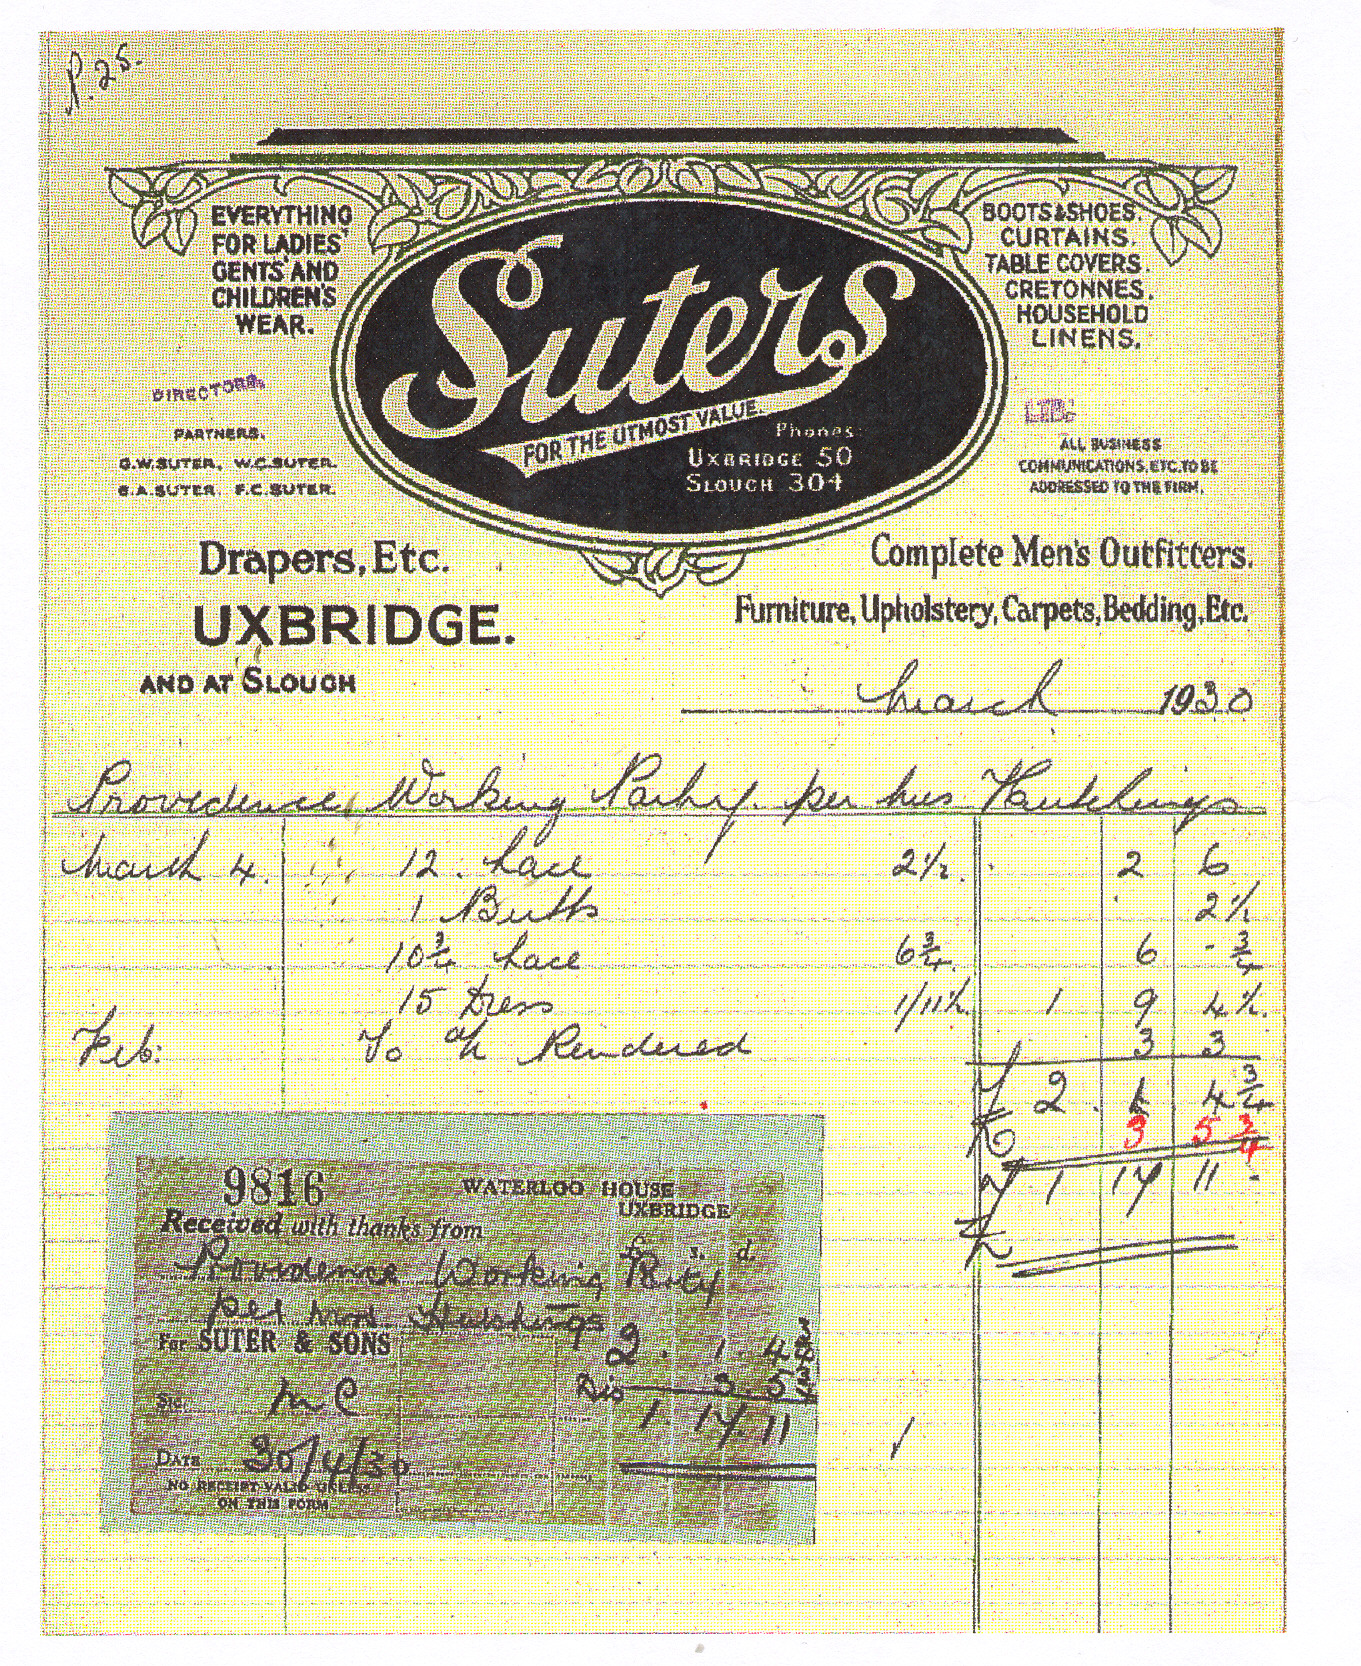 P. 25.
EVERYTHING
FOR LADIES'
GENTS' AND
CHILDREN'S
WEAR.
Suters
FOR THE UTMOST VALUE.
Phones:
UXBRIDGE 50
SLOUGH 304
BOOTS & SHOES.
CURTAINS.
TABLE COVERS.
CRETONNES.
HOUSEHOLD
LINENS.
DIRECTORS.
PARTNERS.
G.W.SUTER. W.C.SUTER.
S.A.SUTER. F.C.SUTER.
LTD.
ALL BUSINESS
COMMUNICATIONS, ETC. TO BE
ADDRESSED TO THE FIRM.
Drapers, Etc.
UXBRIDGE.
AND AT SLOUGH
Complete Men's Outfitters.
Furniture, Upholstery, Carpets, Bedding, Etc.
March 1930
Providence Working Party. per Mrs Hutchings
March 4. 12. Lace 2½. 2 6
1 Butts 2½
10¾ Lace 6¾. 6 - ¾
15 Dress 1/11½. 1 9 4½.
Feb: To a/c Rendered 3 3
£ 2. 1 4¾
3 5¾
£ 1 17 11.
9816
WATERLOO HOUSE
UXBRIDGE
Received with thanks from
£ s. d.
Providence Working Party
per Mrs. Hutchings
For SUTER & SONS
2. 1. 4¾
Dis 3. 5¾
1. 17. 11
Sig. M C
DATE 30/4/30
NO RECEIPT VALID UNLESS
ON THIS FORM